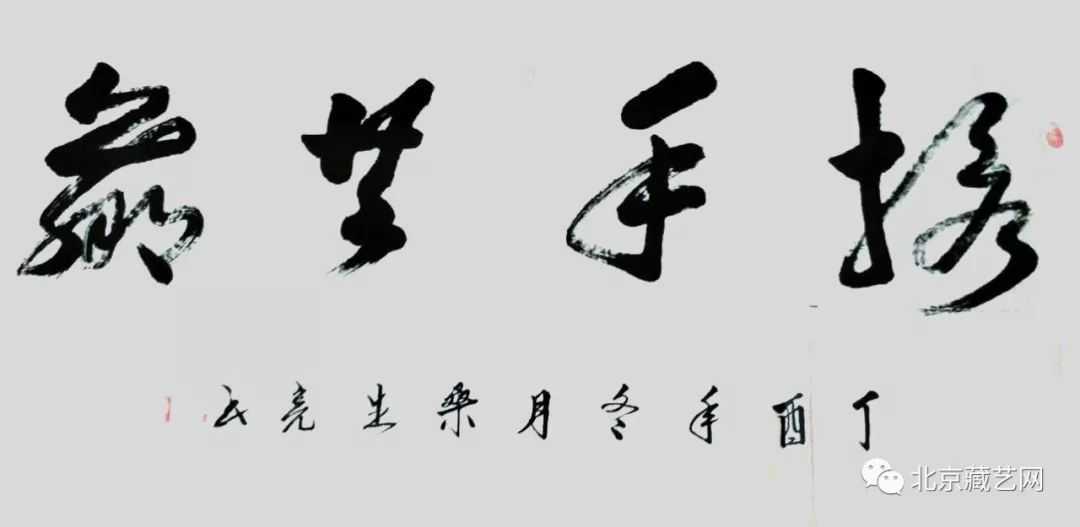 携手共赢
丁酉年冬月桑生亮
北京藏艺网